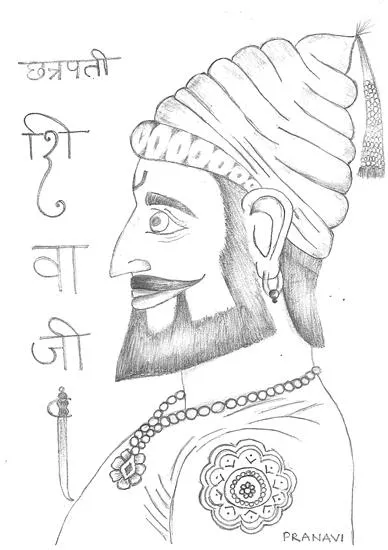 छत्रपती
शि
वा
जी
PRANAVI